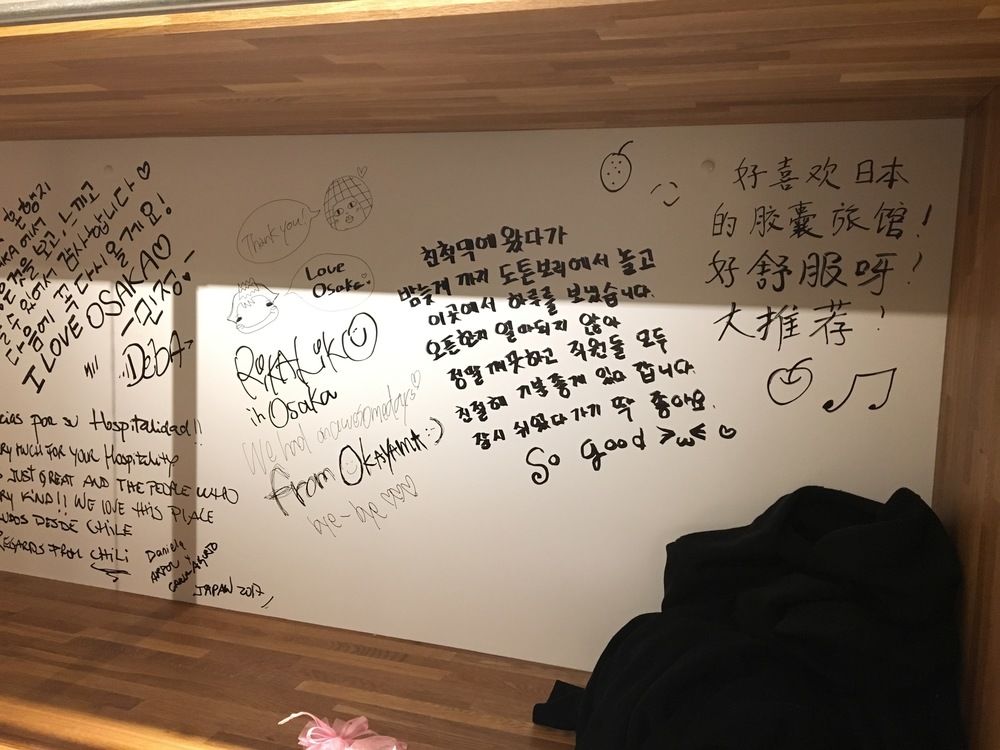 여행지
에서
것을 보고, 느끼고
할 수 있어서 감사합니다♡
다음에 꼭 다시 올게요!
I LOVE OSAKA♡
-민정-
DEBA
cias por su Hospitalidad!!
ERY MUCH FOR YOUR HOSPITALITY
JUST GREAT AND THE PEOPLE WHO
ERY KIND!! WE LOVE THIS PLACE
UDOS DESDE CHILE
REGARDS FROM CHILI
Daniela
JAPAN 2017
Thank you!
Love
Osaka.
in Osaka
We had an awesome days♡
From OKAYAMA :)
bye-bye ♡♡♡
밤늦게 까지 도톤보리에서 놀고
이곳에서 하루를 보냈습니다.
오픈한지 얼마되지 않아
정말 깨끗하고 직원들 모두
친절해 기분좋게 있다 갑니다.
잠시 쉬었다가기 딱 좋아요.
So good >ω< ♡
好喜欢日本
的胶囊旅馆!
好舒服呀!
大推荐!